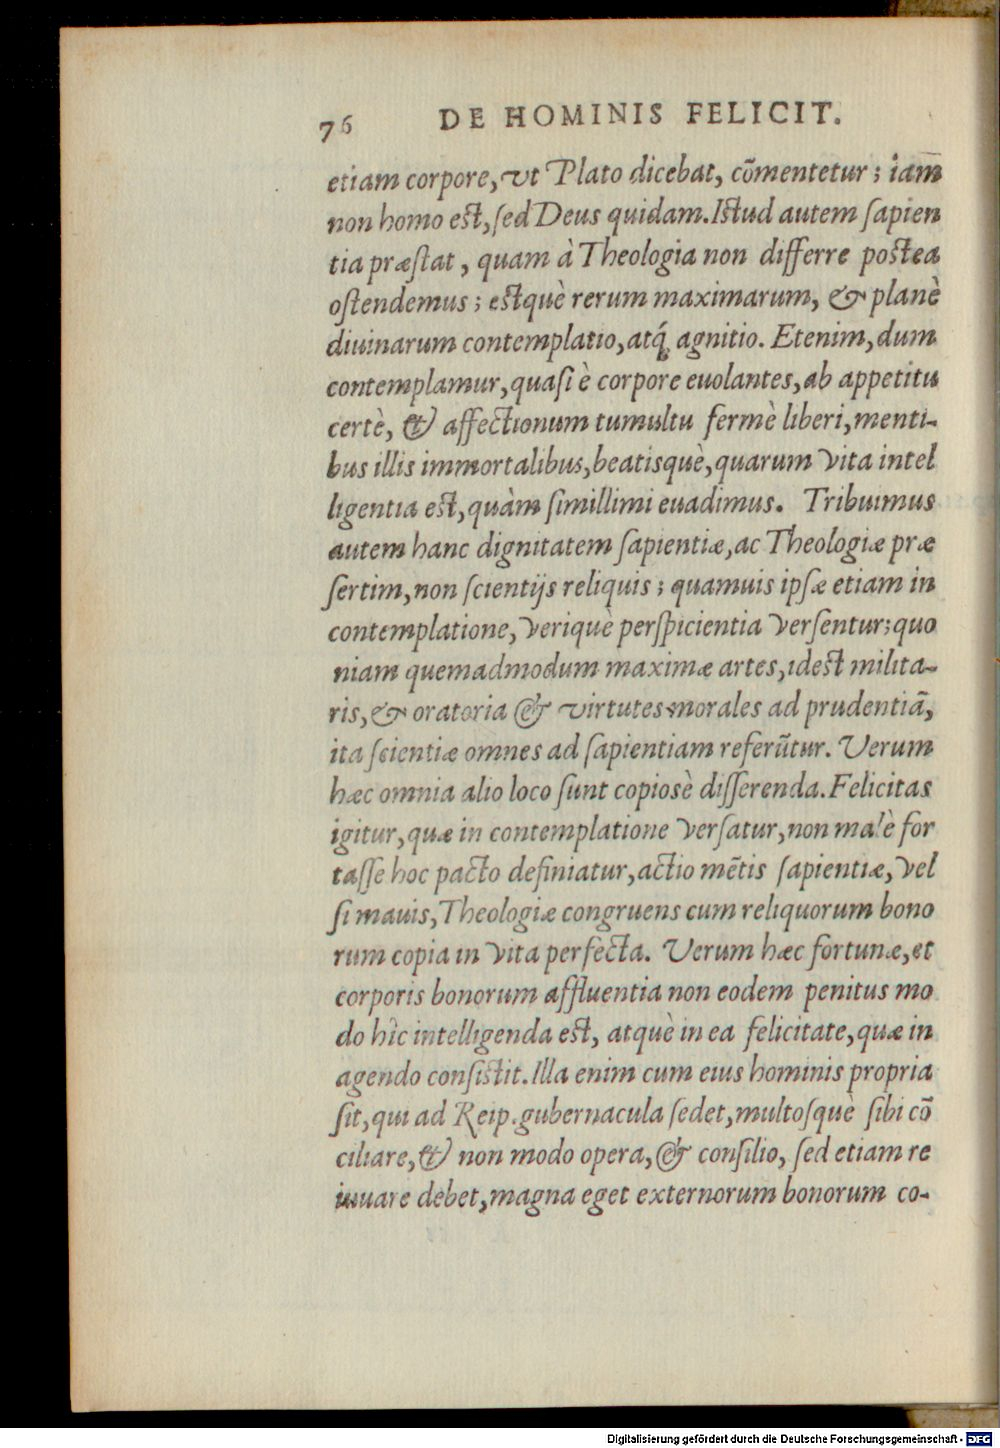 76 DE HOMINIS FELICIT.
etiam corpore, vt Plato dicebat, cõmentetur; iam
non homo est, ſed Deus quidam. Iſtud autem ſapien
tia præſtat, quam à Theologia non differre poſtea
oſtendemus; eſtquè rerum maximarum, & planè
diuinarum contemplatio, atq́; agnitio. Etenim, dum
contemplamur, quaſi è corpore euolantes, ab appetitu
certè, & affectionum tumultu fermè liberi, menti-
bus illis immortalibus, beatisquè, quarum vita intel
ligentia eſt, quàm ſimillimi euadimus. Tribuimus
autem hanc dignitatem ſapientiæ, ac Theologiæ præ
ſertim, non ſcientijs reliquis; quamuis ipſæ etiam in
contemplatione, veriquè perſpicientia verſentur; quo
niam quemadmodum maximæ artes, idest milita-
ris, & oratoria & virtutes morales ad prudentiã,
ita ſcientiæ omnes ad ſapientiam referũtur. Verum
hæc omnia alio loco ſunt copiosè diſſerenda. Felicitas
igitur, quæ in contemplatione verſatur, non malè for
taſſe hoc pacto definiatur, actio mẽtis ſapientiæ, vel
ſi mauis, Theologiæ congruens cum reliquorum bono
rum copia in vita perfecta. Verum hæc fortunæ, et
corporis bonorum affluentia non eodem penitus mo
do hîc intelligenda eſt, atquè in ea felicitate, quæ in
agendo conſiſtit. Illa enim cum eius hominis propria
ſit, qui ad Reip. gubernacula ſedet, multoſquè ſibi cõ
ciliare, & non modo opera, & conſilio, ſed etiam re
iuuare debet, magna eget externorum bonorum co-
Digitalisierung gefördert durch die Deutsche Forschungsgemeinschaft - DFG